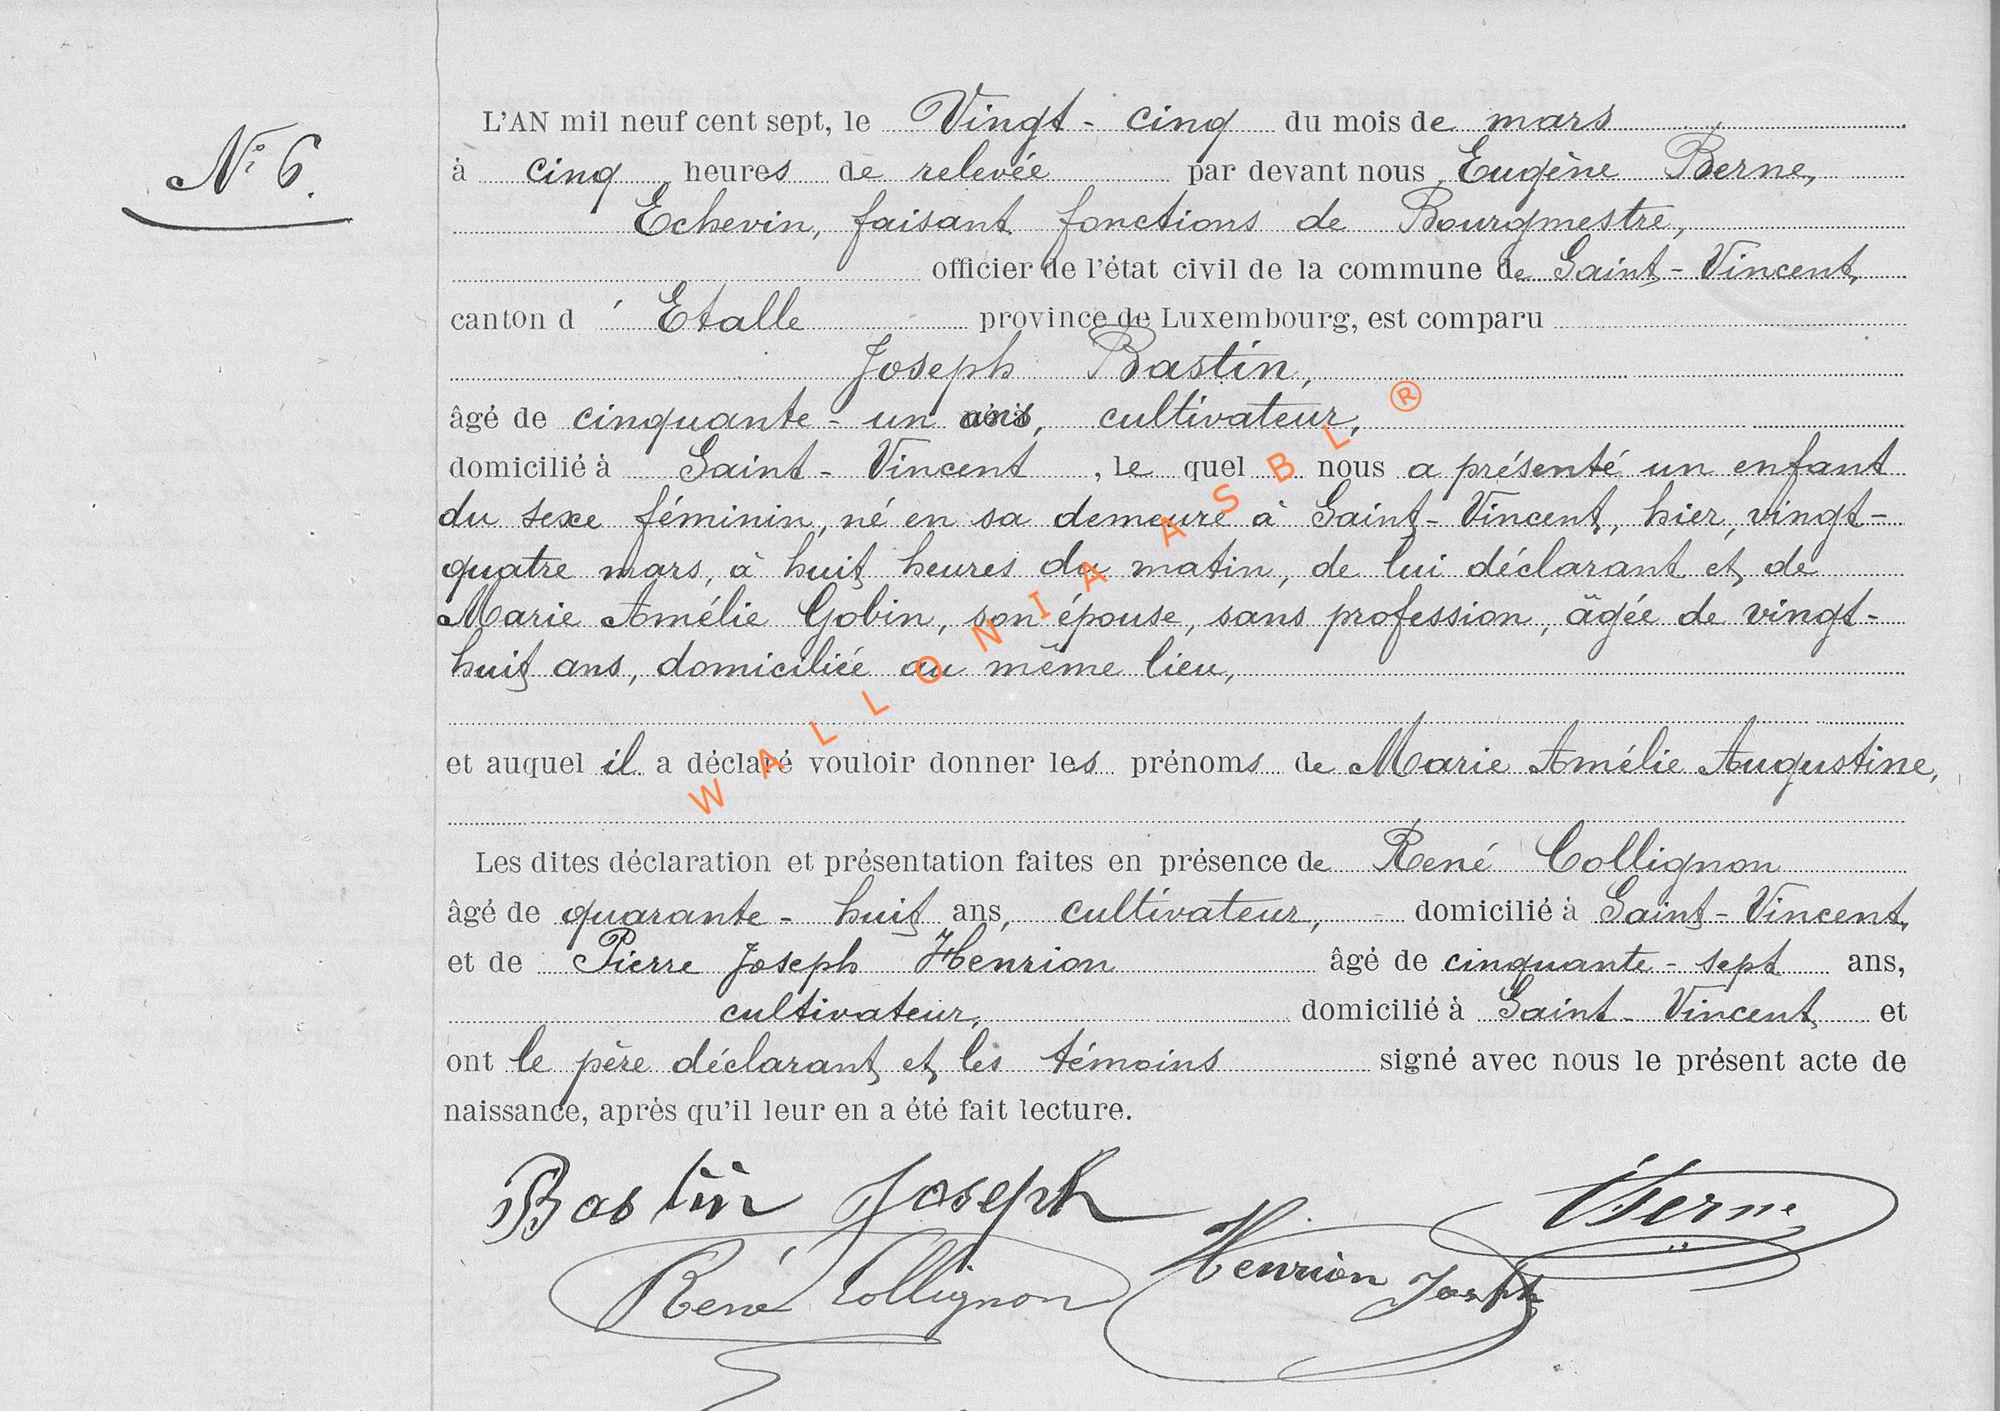 N° 6.
L'AN mil neuf cent sept, le Vingt-cinq du mois de mars
à cinq heures de relevée par devant nous Eugène Berne,
Echevin, faisant fonctions de Bourgmestre,
officier de l'état civil de la commune de Saint-Vincent,
canton d'Etalle province de Luxembourg, est comparu
Joseph Bastin,
âgé de cinquante-un ans, cultivateur,
domicilié à Saint-Vincent, le quel nous a présenté un enfant
du sexe féminin, né en sa demeure à Saint-Vincent, hier, vingt-
quatre mars, à huit heures du matin, de lui déclarant et de
Marie Amélie Gobin, son épouse, sans profession, âgée de vingt-
huit ans, domiciliée au même lieu,
et auquel il a déclaré vouloir donner les prénoms de Marie Amélie Augustine,
Les dites déclaration et présentation faites en présence de René Collignon
âgé de quarante-huit ans, cultivateur, domicilié à Saint-Vincent,
et de Pierre Joseph Henrion âgé de cinquante-sept ans,
cultivateur, domicilié à Saint-Vincent et
ont le père déclarant et les témoins signé avec nous le présent acte de
naissance, après qu'il leur en a été fait lecture.
Bastin Joseph
EBerne
René Collignon
Henrion Joseph
WALLONIA ASBL ®